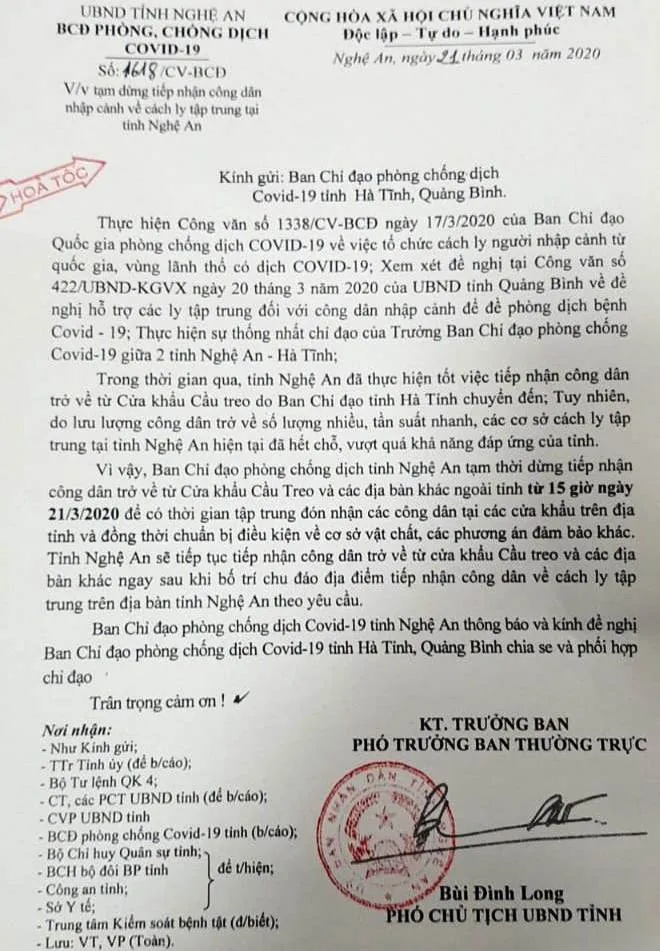 UBND TỈNH NGHỆ AN
BCĐ PHÒNG, CHỐNG DỊCH
COVID-19
Số: 1618/CV-BCĐ
V/v tạm dừng tiếp nhận công dân
nhập cảnh về cách ly tập trung tại
tỉnh Nghệ An
CỘNG HÒA XÃ HỘI CHỦ NGHĨA VIỆT NAM
Độc lập – Tự do – Hạnh phúc
Nghệ An, ngày 21 tháng 03 năm 2020
HOẢ TỐC
Kính gửi: Ban Chỉ đạo phòng chống dịch
Covid-19 tỉnh Hà Tĩnh, Quảng Bình.
Thực hiện Công văn số 1338/CV-BCĐ ngày 17/3/2020 của Ban Chỉ đạo
Quốc gia phòng chống dịch COVID-19 về việc tổ chức cách ly người nhập cảnh từ
quốc gia, vùng lãnh thổ có dịch COVID-19; Xem xét đề nghị tại Công văn số
422/UBND-KGVX ngày 20 tháng 3 năm 2020 của UBND tỉnh Quảng Bình về đề
nghị hỗ trợ các ly tập trung đối với công dân nhập cảnh để đề phòng dịch bệnh
Covid - 19; Thực hiện sự thống nhất chỉ đạo của Trưởng Ban Chỉ đạo phòng chống
Covid-19 giữa 2 tỉnh Nghệ An - Hà Tĩnh;
Trong thời gian qua, tỉnh Nghệ An đã thực hiện tốt việc tiếp nhận công dân
trở về từ Cửa khẩu Cầu treo do Ban Chỉ đạo tỉnh Hà Tĩnh chuyển đến; Tuy nhiên,
do lưu lượng công dân trở về số lượng nhiều, tần suất nhanh, các cơ sở cách ly tập
trung tại tỉnh Nghệ An hiện tại đã hết chỗ, vượt quá khả năng đáp ứng của tỉnh.
Vì vậy, Ban Chỉ đạo phòng chống dịch tỉnh Nghệ An tạm thời dừng tiếp nhận
công dân trở về từ Cửa khẩu Cầu Treo và các địa bàn khác ngoài tỉnh từ 15 giờ ngày
21/3/2020 để có thời gian tập trung đón nhận các công dân tại các cửa khẩu trên địa
tỉnh và đồng thời chuẩn bị điều kiện về cơ sở vật chất, các phương án đảm bảo khác.
Tỉnh Nghệ An sẽ tiếp tục tiếp nhận công dân trở về từ cửa khẩu Cầu treo và các địa
bàn khác ngay sau khi bố trí chu đáo địa điểm tiếp nhận công dân về cách ly tập
trung trên địa bàn tỉnh Nghệ An theo yêu cầu.
Ban Chỉ đạo phòng chống dịch Covid-19 tỉnh Nghệ An thông báo và kính đề nghị
Ban Chỉ đạo phòng chống dịch Covid-19 tỉnh Hà Tĩnh, Quảng Bình chia sẻ và phối hợp
chỉ đạo
Trân trọng cảm ơn !
Nơi nhận:
- Như Kính gửi;
- TTr Tỉnh ủy (để b/cáo);
- Bộ Tư lệnh QK 4;
- CT, các PCT UBND tỉnh (để b/cáo);
- CVP UBND tỉnh
- BCĐ phòng chống Covid-19 tỉnh (b/cáo);
- Bộ Chỉ huy Quân sự tỉnh;
- BCH bộ đôi BP tỉnh
- Công an tỉnh;
- Sở Y tế;
để t/hiện;
- Trung tâm Kiểm soát bệnh tật (đ/biết);
- Lưu: VT, VP (Toàn).
KT. TRƯỞNG BAN
PHÓ TRƯỞNG BAN THƯỜNG TRỰC
Bùi Đình Long
PHÓ CHỦ TỊCH UBND TỈNH